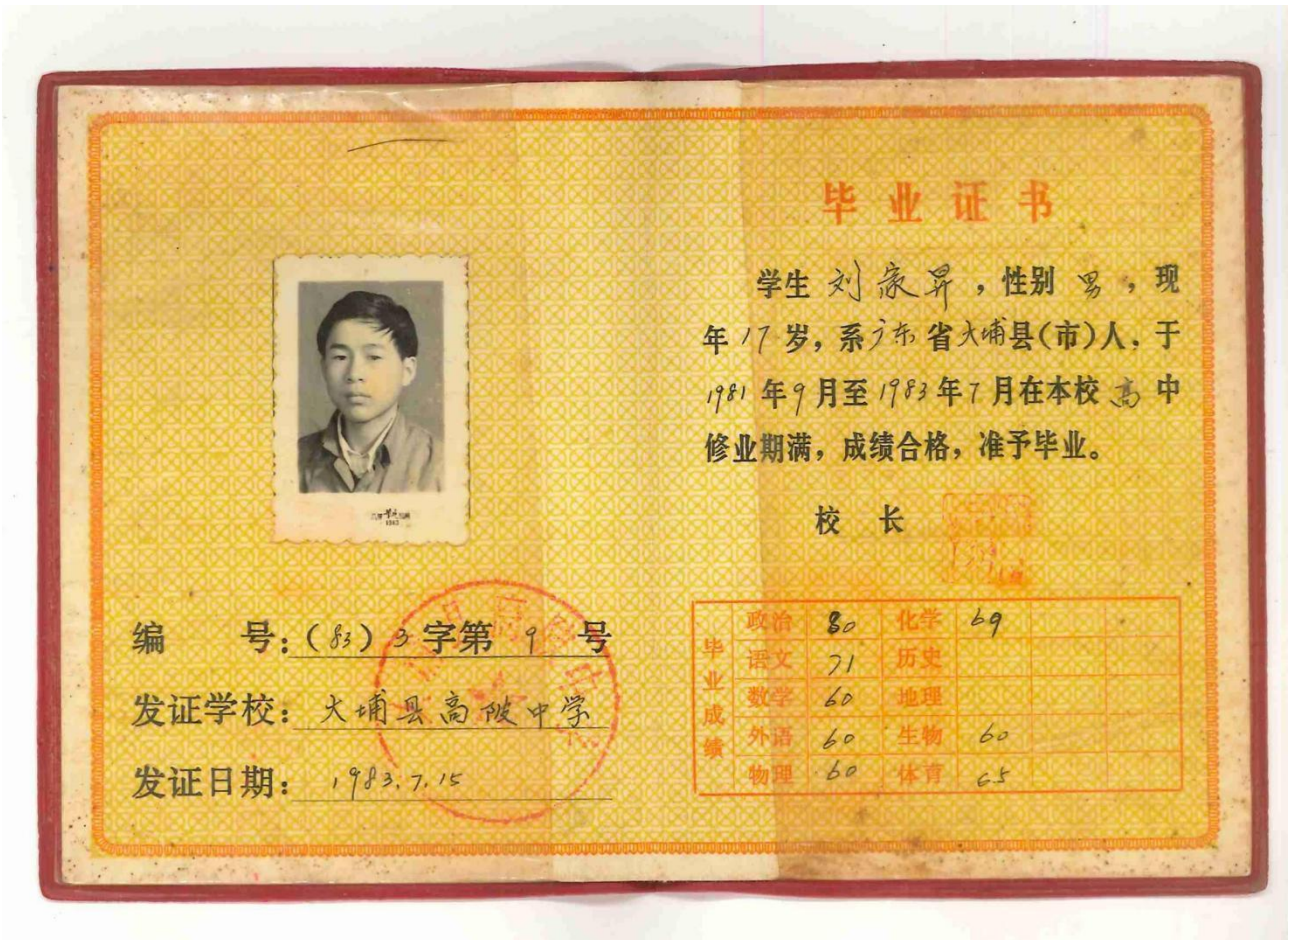 1983
编 号：（83）3字第 9 号
发证学校：大埔县高陂中学
发证日期：1983.7.15
毕业证书
学生 刘家昇，性别 男，现
年 17 岁，系广东省大埔县（市）人，于
1981年9月至1983年7月在本校高中
修业期满，成绩合格，准予毕业。
校 长
毕业成绩
政治 80 化学 69
语文 71 历史
数学 60 地理
外语 60 生物 60
物理 60 体育 65